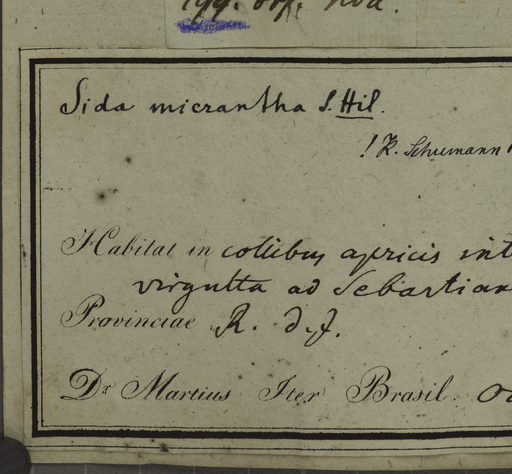 nova.
Sida micrantha S. Hil.
! K. Schumann
Habitat in collibus apricis int
virgulta ad Sebastian
Provinciae R. d. J.
Dr Martius Iter Brasil. Oc